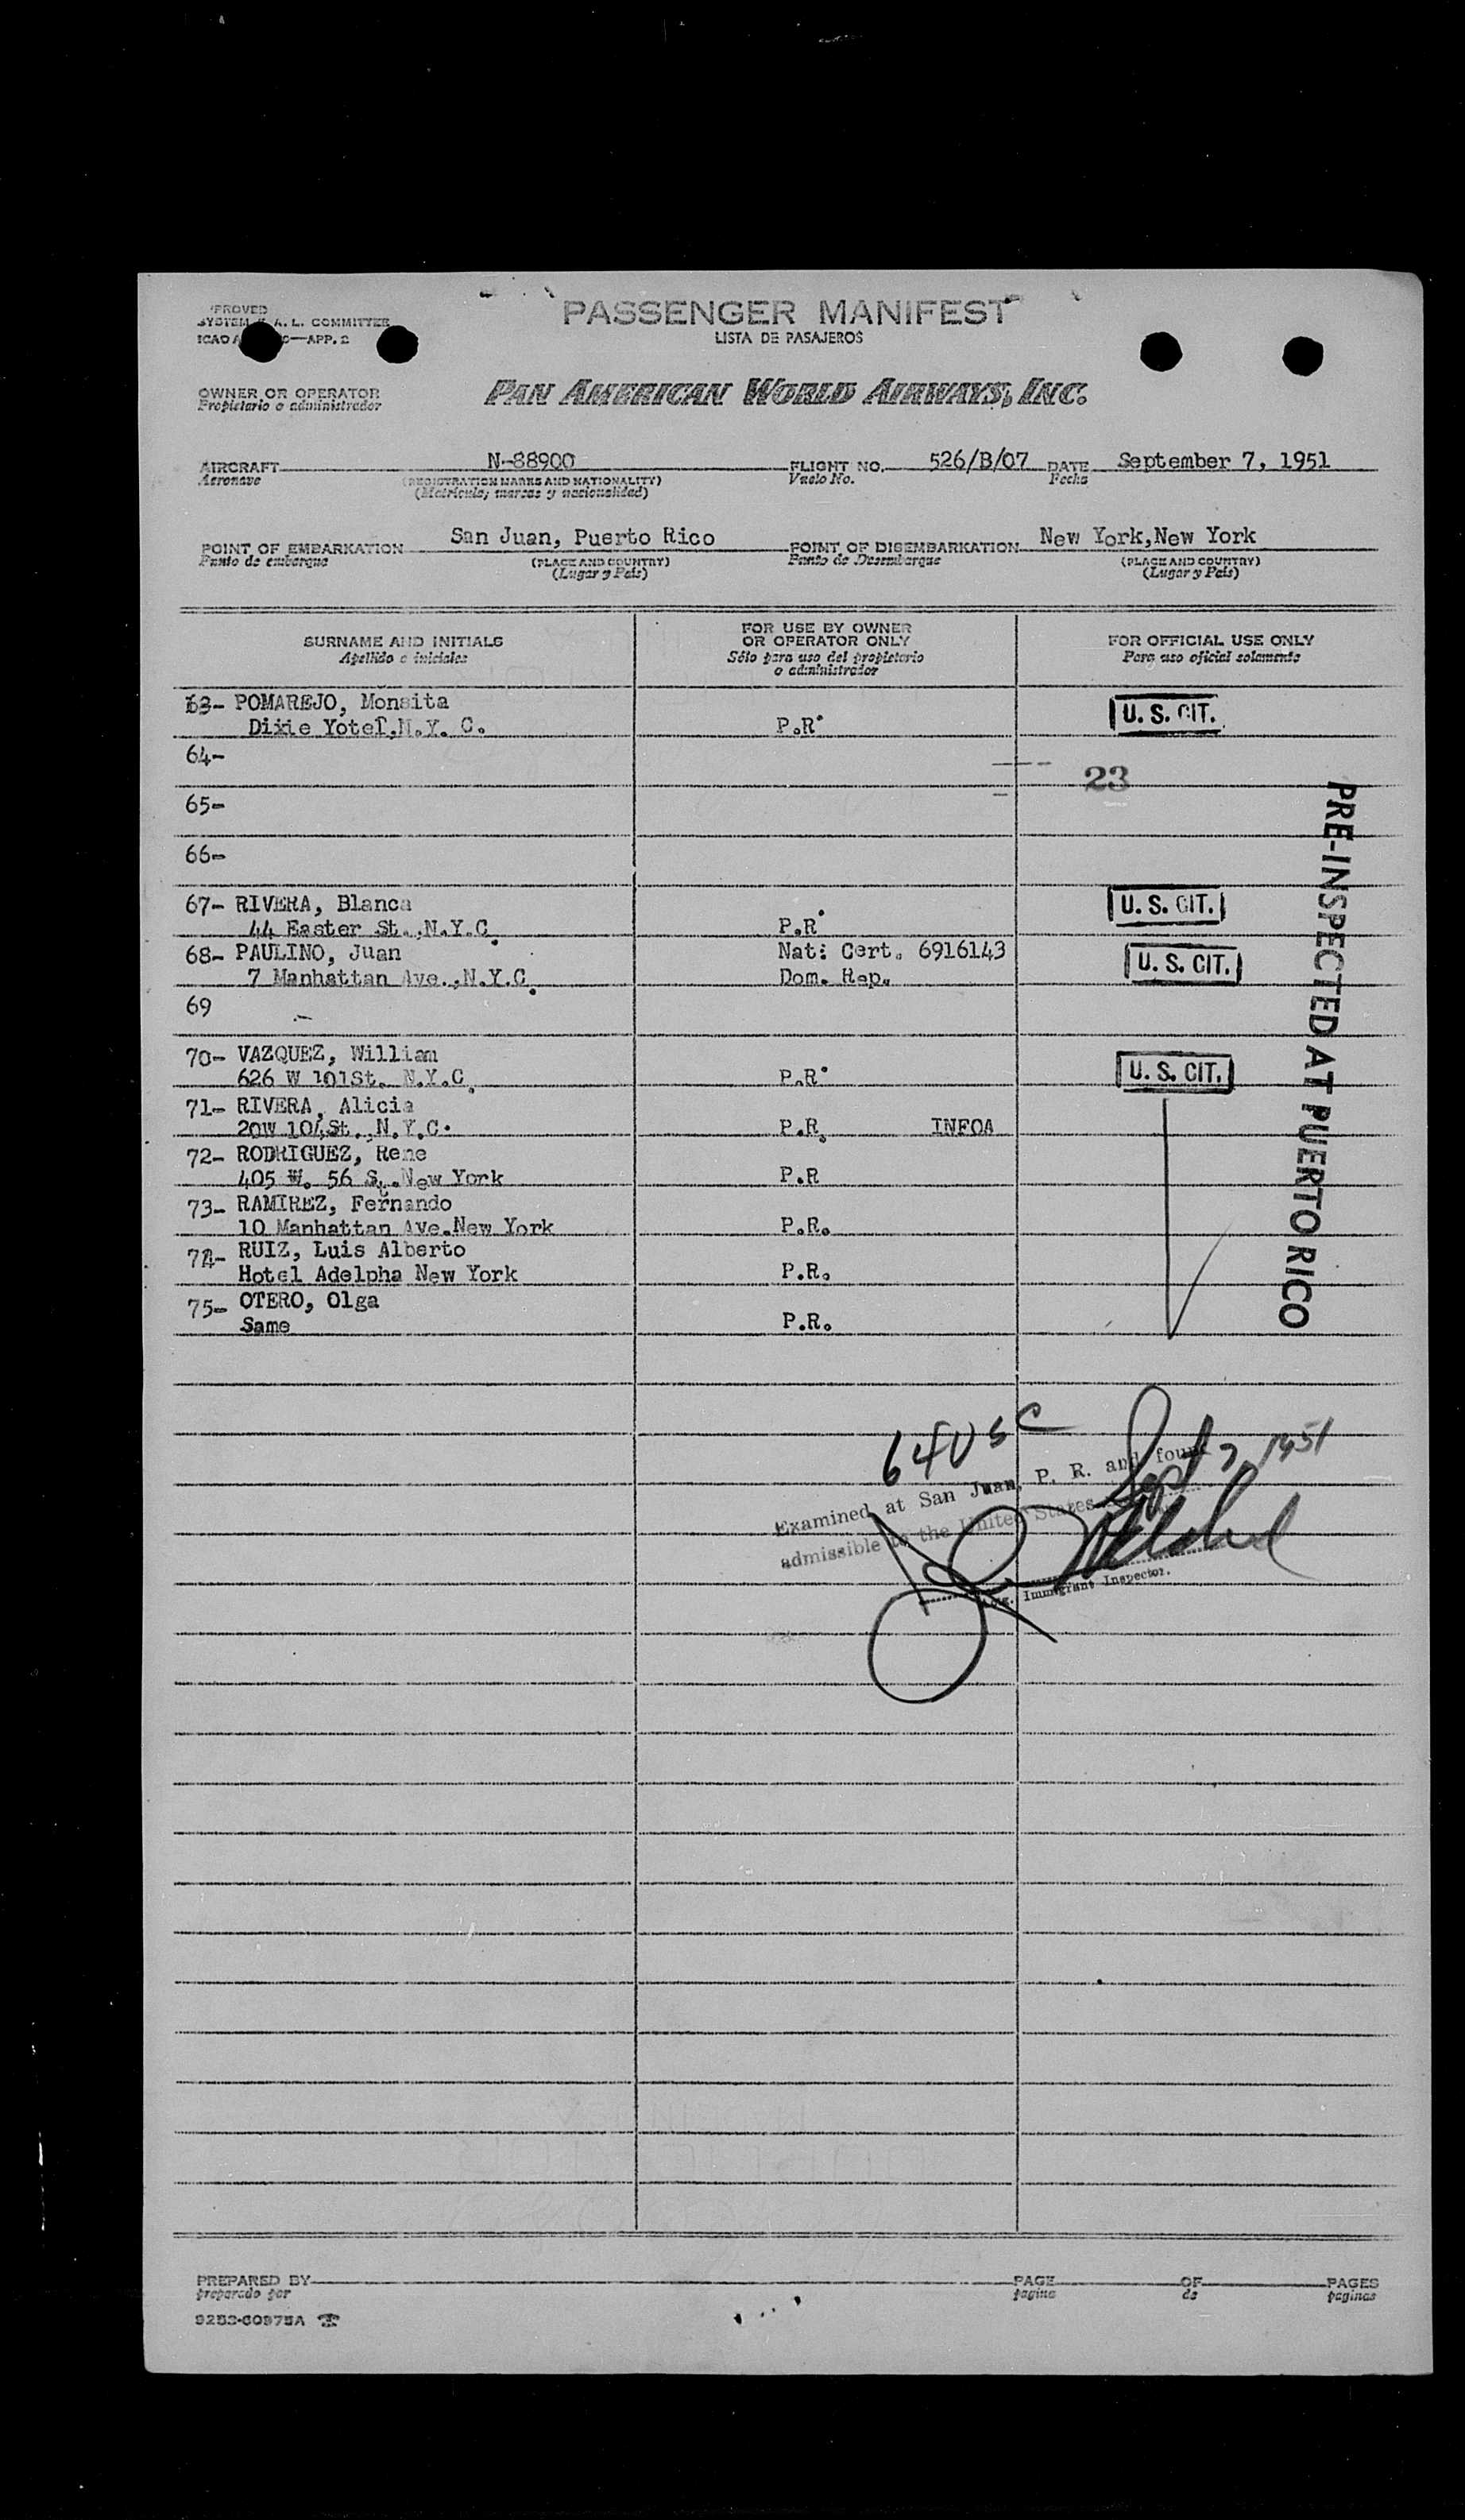 PASSENGER MANIFEST
LISTA DE PASAJEROS
PROVED
SYSTEM A. L. COMMITTEE
ICAO A —APP. 2
OWNER OR OPERATOR
Propietario o administrador
PAN AMERICAN WORLD AIRWAYS, INC.
AIRCRAFT N-88900 FLIGHT NO. 526/B/07 DATE September 7, 1951
Aeronave (REGISTRATION MARKS AND NATIONALITY) Vuelo No. Fecha
(Matrícula; marcas y nacionalidad)
POINT OF EMBARKATION San Juan, Puerto Rico POINT OF DISEMBARKATION New York,New York
Punto de embarque (PLACE AND COUNTRY) Punto de Desembarque (PLACE AND COUNTRY)
(Lugar y País) (Lugar y País)
SURNAME AND INITIALS FOR USE BY OWNER OR OPERATOR ONLY FOR OFFICIAL USE ONLY
Apellido e iniciales Sólo para uso del propietario o administrador Para uso oficial solamente
63- POMAREJO, Monsita
Dixie Yotel,N.Y. C. P.R. U. S. CIT.
64-
23
65-
66-
67- RIVERA, Blanca U. S. CIT.
44 Easter St.,N.Y.C. P.R.
68- PAULINO, Juan Nat: Cert. 6916143 U. S. CIT.
7 Manhattan Ave.,N.Y.C. Dom. Rep.
69
70- VAZQUEZ, William U. S. CIT.
626 W 101St. N.Y.C. P.R.
71- RIVERA, Alicia
20W 104St.,N.Y.C. P.R. INFOA
72- RODRIGUEZ, Rene
405 W. 56 St.New York P.R
73- RAMIREZ, Fernando
10 Manhattan Ave.New York P.R.
74- RUIZ, Luis Alberto
Hotel Adelpha New York P.R.
75- OTERO, Olga
Same P.R.
PRE-INSPECTED AT PUERTO RICO
64 USC
Sept 7, 1951
Examined at San Juan, P. R. and found
admissible to the United States
Immigrant Inspector.
PREPARED BY PAGE OF PAGES
preparado por pagina de paginas